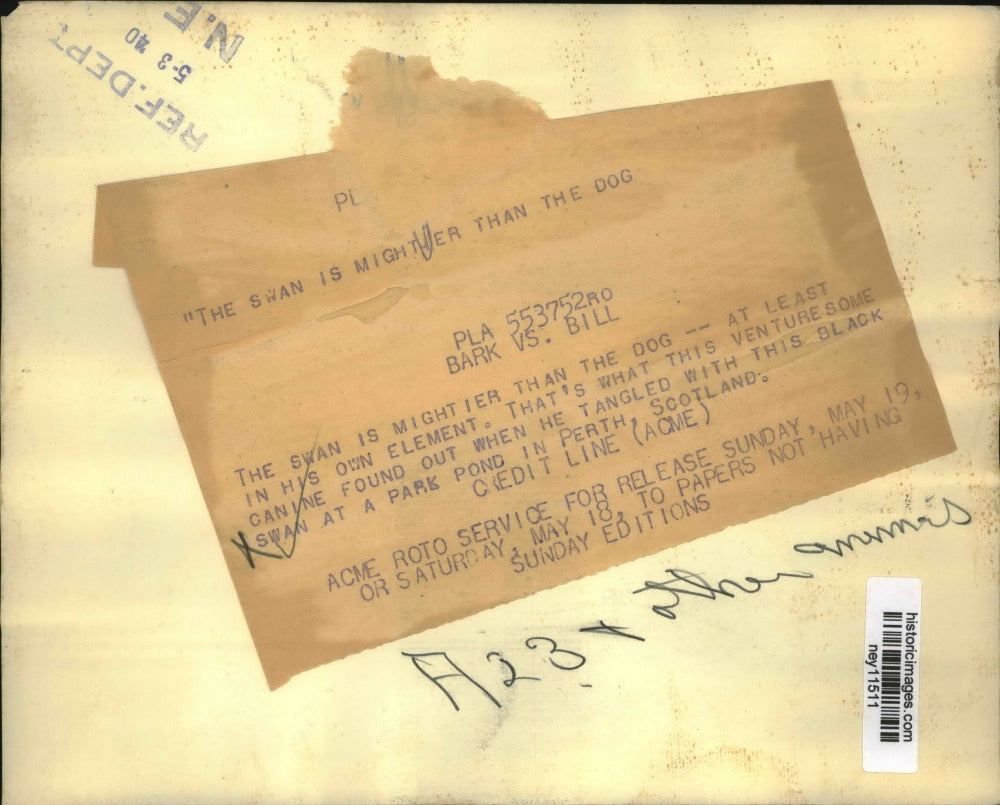 N.E
5-3 40
REF.DEPT
PL
"THE SWAN IS MIGHTIER THAN THE DOG
PLA 553752RO
BARK VS. BILL
THE SWAN IS MIGHTIER THAN THE DOG -- AT LEAST
IN HIS OWN ELEMENT. THAT'S WHAT THIS VENTURESOME
CANINE FOUND OUT WHEN HE TANGLED WITH THIS BLACK
SWAN AT A PARK POND IN PERTH, SCOTLAND.
CREDIT LINE (ACME)
ACME ROTO SERVICE FOR RELEASE SUNDAY, MAY 19,
OR SATURDAY, MAY 18, TO PAPERS NOT HAVING
SUNDAY EDITIONS
A23 other animals
historicimages.com
ney11511